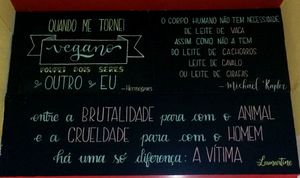 QUANDO ME TORNEI
vegano
POUPEI DOIS SERES
O OUTRO E EU
- Hermógenes
O CORPO HUMANO NÃO TEM NECESSIDADE
DE LEITE DE VACA
ASSIM COMO NÃO A TEM
DO LEITE DE CACHORROS
LEITE DE CAVALO
OU LEITE DE GIRAFAS
- Michael Klaper
entre a BRUTALIDADE para com o ANIMAL
e a CRUELDADE para com o HOMEM
há uma só diferença: A VÍTIMA
Lamartine